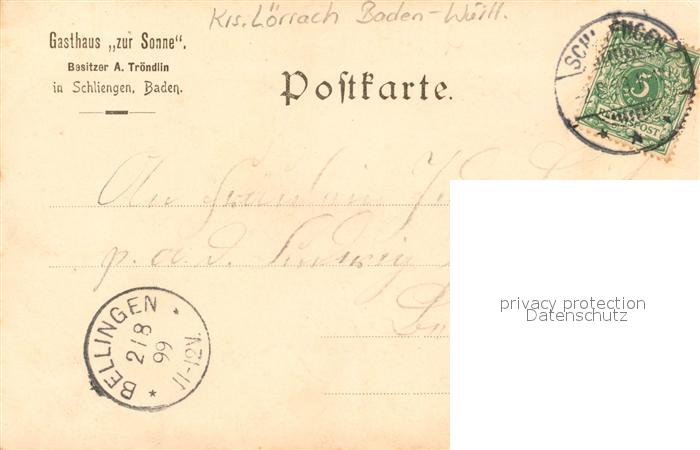 Krs. Lörrach Baden-Württ.
Gasthaus „zur Sonne“.
Besitzer A. Tröndlin
in Schliengen, Baden.
Postkarte.
SCHLIENGEN
5
REICHSPOST
An Fräulein
p. a. d. Ludwig
privacy protection
Datenschutz
BELLINGEN
2/8
99
11-12V.